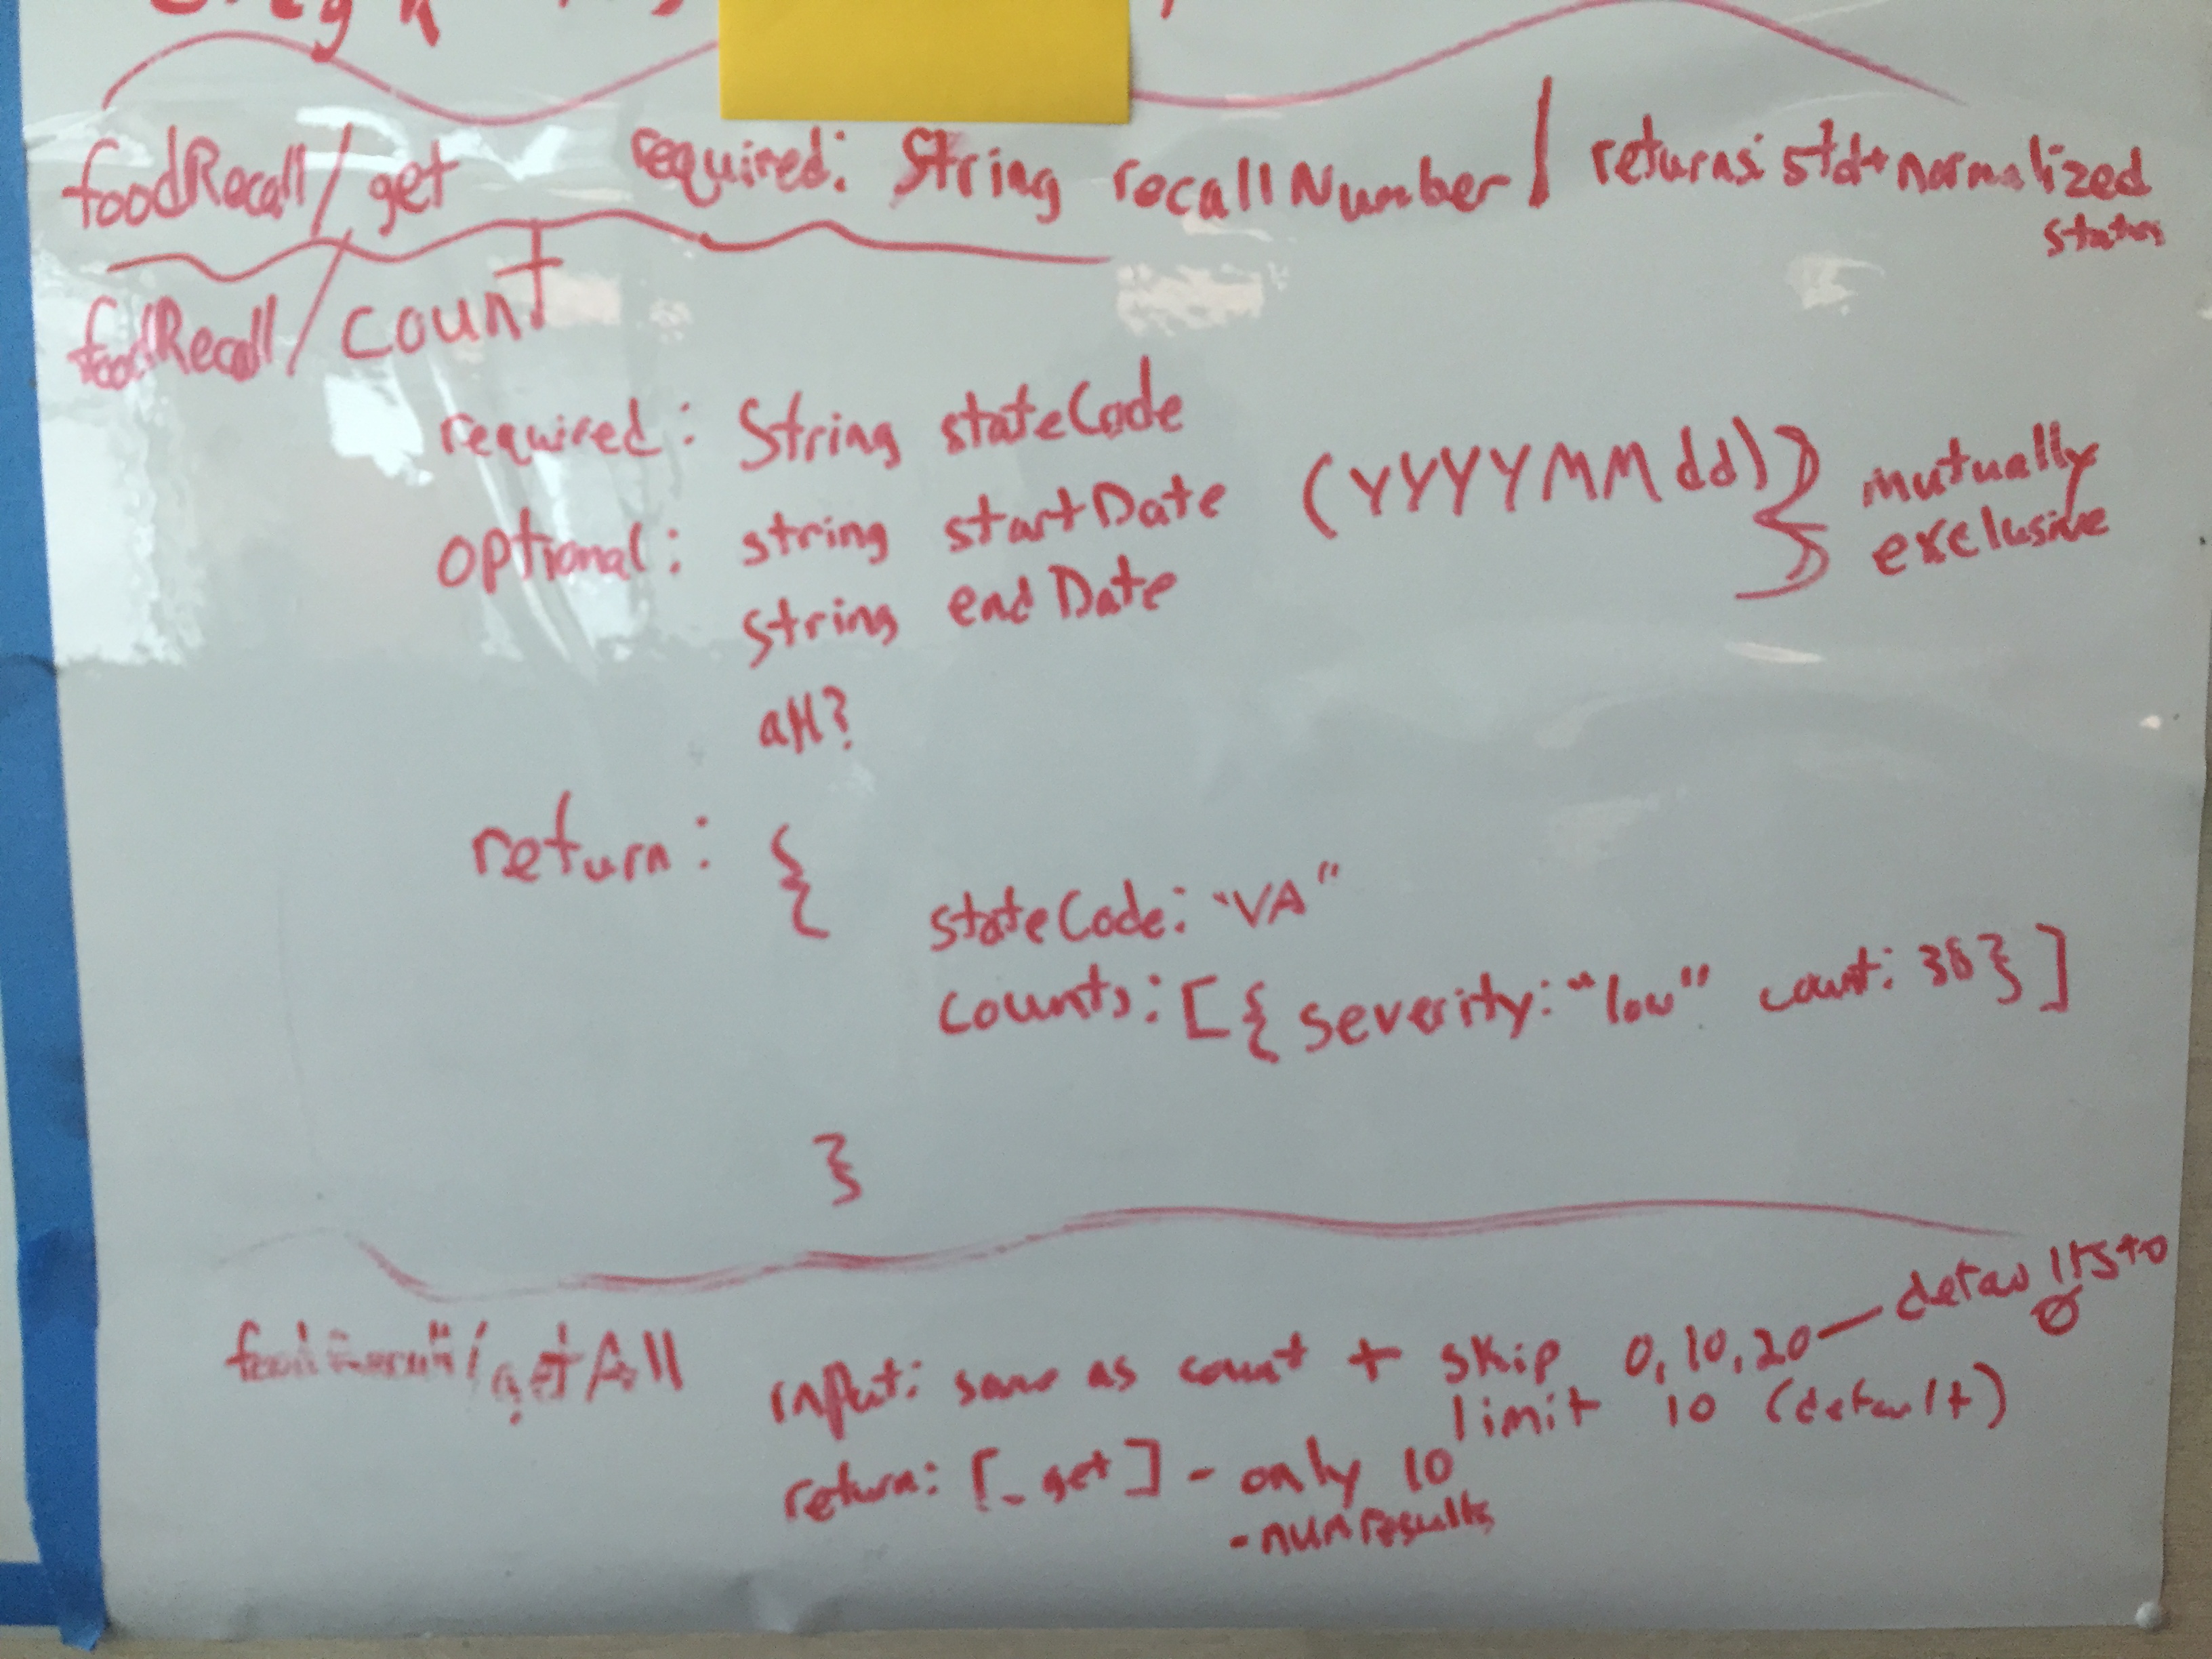 foodRecall/get required: String recallNumber | returns: std + normalized
status
foodRecall/count
required: String stateCode
optional: string startDate (YYYYMMdd) } mutually
string endDate exclusive
all?
return: {
stateCode: "VA"
counts: [{severity: "low" count: 38}]
}
foodRecall/getAll input: same as count + skip 0, 10, 20 — defaults to
0
limit 10 (default)
return: [_get] - only 10
- numresults